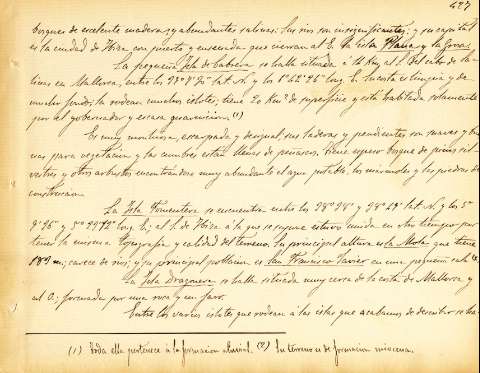 427
bosques de excelente madera, y abundantes salinas: Sus rios son insignificantes; y su capital
es la ciudad de Ibiza con puerto y ensenada que cierran al E. la isla Plana y la Grosa.
La pequeña Isla de Cabrera se halla situada á 14 Km. al S. del cabo de Sa-
linas en Mallorca, entre los lat. N. y los long. E. Su costa es limpia y de
mucho fondo; la rodean muchos islotes; tiene 20 Km² de superficie y está habitada solamente
por el gobernador y escasa guarnicion. (1)
Es muy montuosa, escarpada y desigual, sus laderas y pendientes son suaves y bue-
nas para vegetacion y las cumbres están llenas de peñascos. tiene espeso bosque de pinos sil-
vestres y otros arbustos encontrándose muy abundante el agua potable, los minerales y las piedras de
construccion.
La Isla Formentera se encuentra entre los lat. N. y los 5°
long. E.; al S. de Ibiza á la que se supone estuvo unida en otro tiempo por
tener la misma topografia y calidad del terreno. Su principal altura es la Mola que tiene
189 m.; carece de rios; y su principal poblacion es San Francisco Javier en una pequeña cala (2).
La Isla Dragonera se halla situada muy cerca de la costa de Mallorca y
al O.; formada por una roca y un faro.
Entre los varios islotes que rodean á las islas que acabamos de describir se ha-
(1) Toda ella pertenece á la formacion aluvial. (2) Su terreno es de formacion miocena.